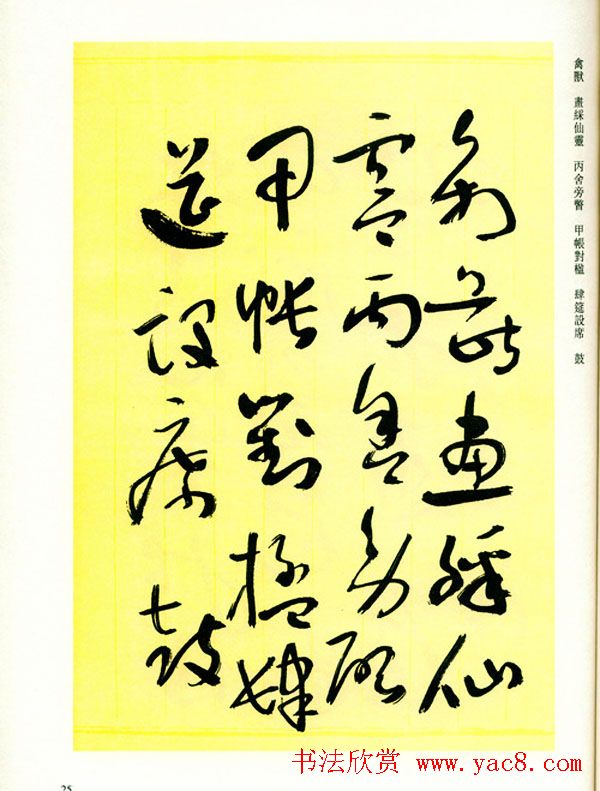 禽獸 畫綵仙靈 丙舍旁啓 甲帳對楹 肆筵設席 鼓
禽獸畫綵仙
靈丙舍旁啓
甲帳對楹肆
筵設席鼓
25
书法欣赏 www.yac8.com